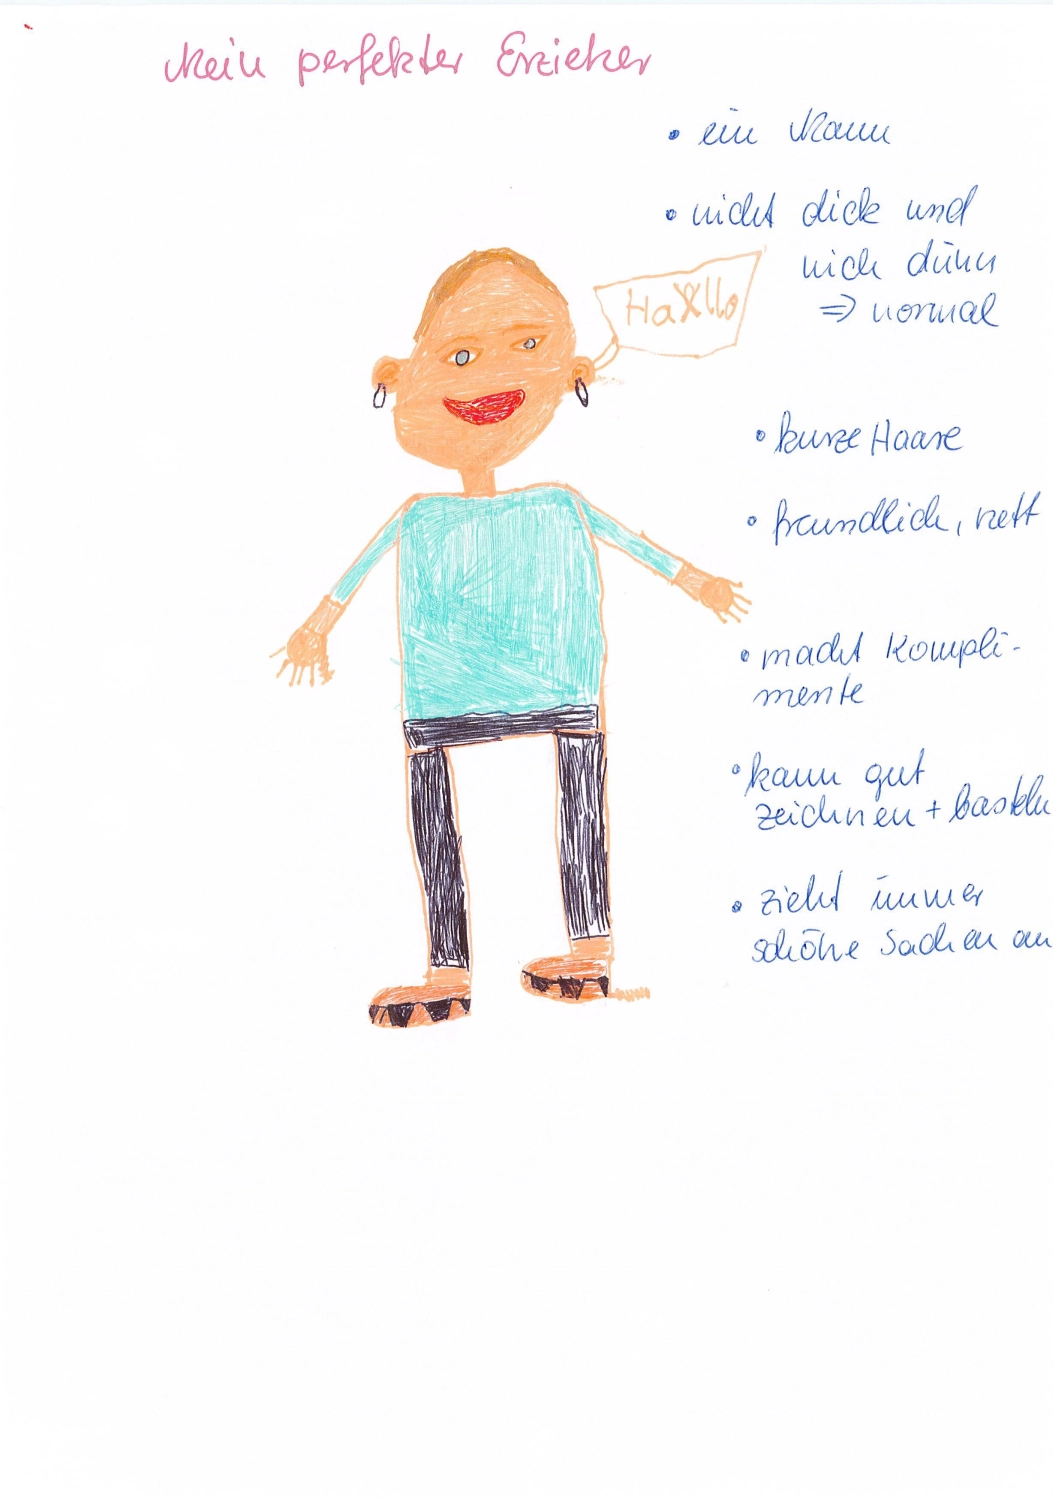 Mein perfekter Erzieher
• ein Mann
• nicht dick und
nich dünn
⇒ normal
Hallo
• kurze Haare
• freundlich, nett
• macht Kompli-
mente
• kann gut
zeichnen + basteln
• zieht immer
schöne Sachen an